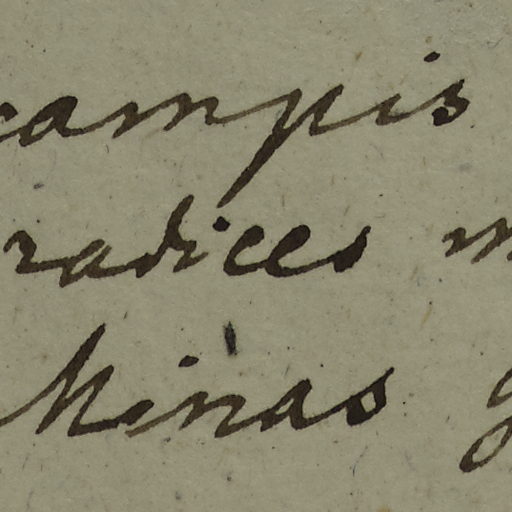 campis
radices m
Minas g